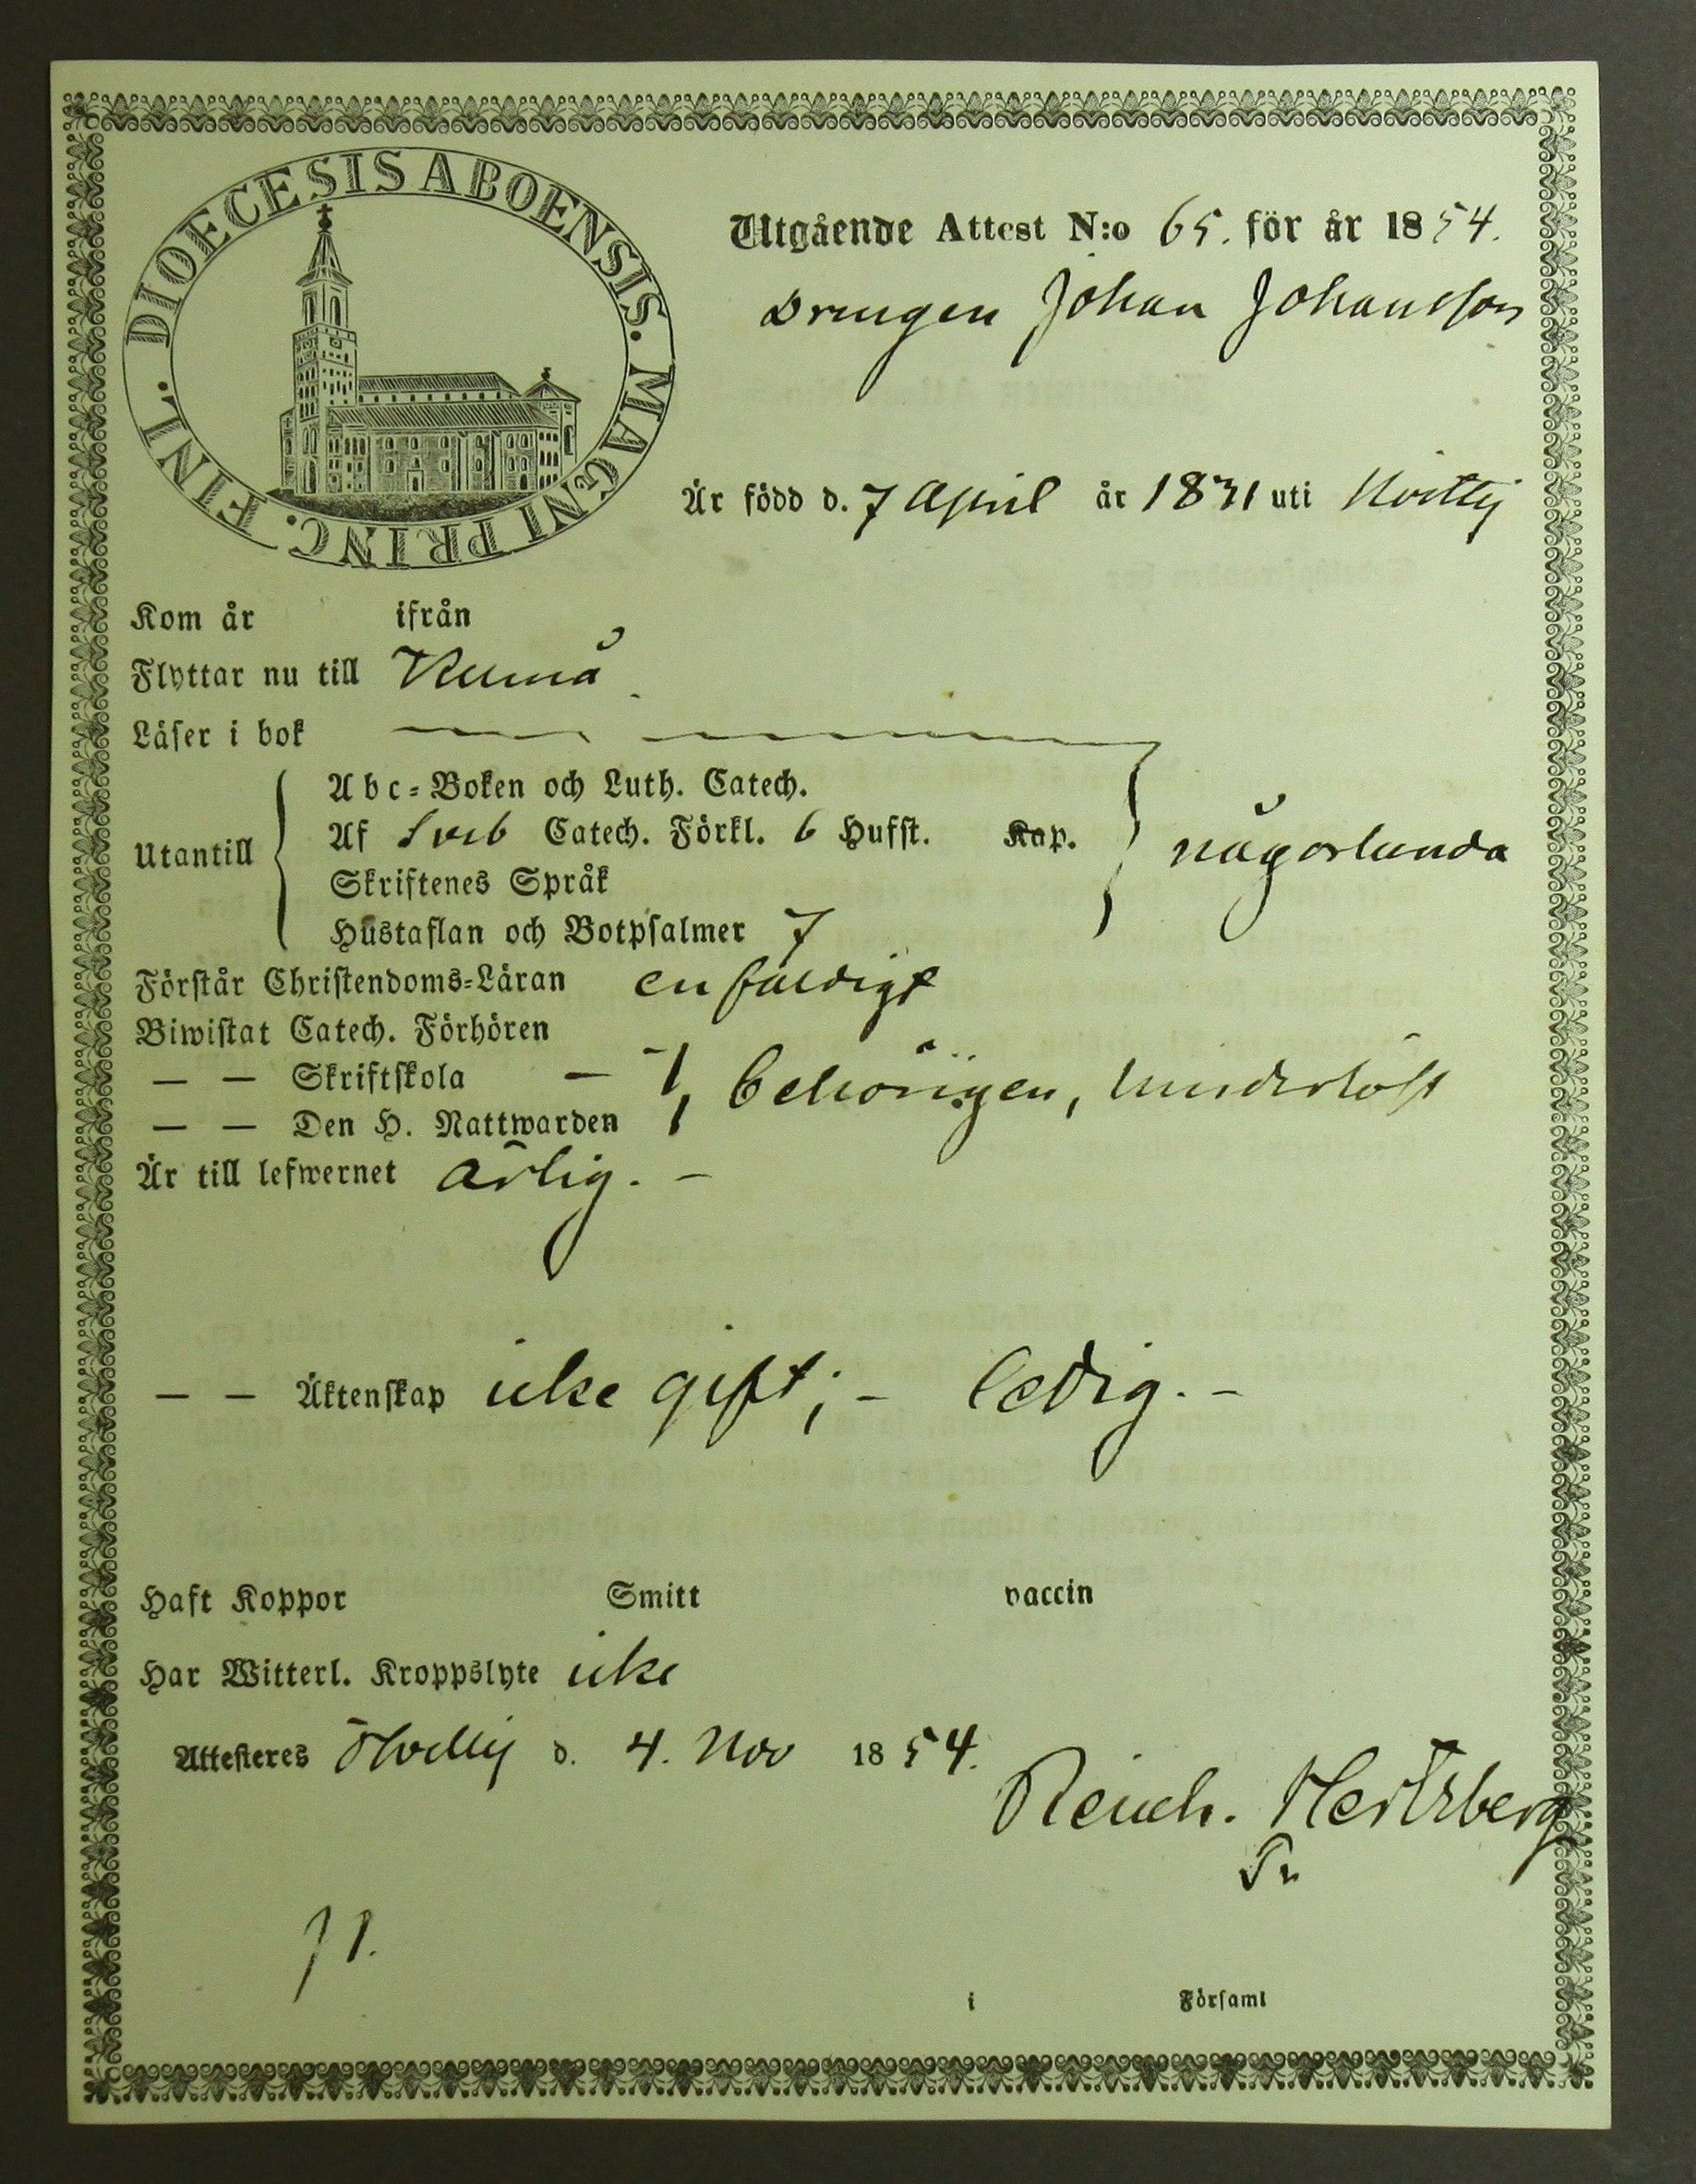 DIOECESIS ABOENSIS. MAGNI PRINC. FINL.
Utgående Attest N:o 65. för år 1854.
Drengen Johan Johansson
Är född d. 7 April år 1831 uti Hvittis
Kom år ifrån
Flyttar nu till Kumå
Läser i bok
Abc-Boken och Luth. Catech.
Utantill Af Sveb Catech. Förkl. 6 Hufst. Kap. någorlunda
Skriftenes Språk
Hustaflan och Botpsalmer 7
Förstår Christendoms-Läran enfaldigt
Biwistat Catech. Förhören
— — Skriftskola — behörigen,
— — Den H. Nattwarden
Är till lefwernet ärlig. –
— — Äktenskap icke gift; – ledig. –
Haft Koppor Smitt vaccin
Har Witterl. Kroppslyte icke
Attesteres d. 4. Nov 1854.
Reinh. Hertzberg
71.
i Församl